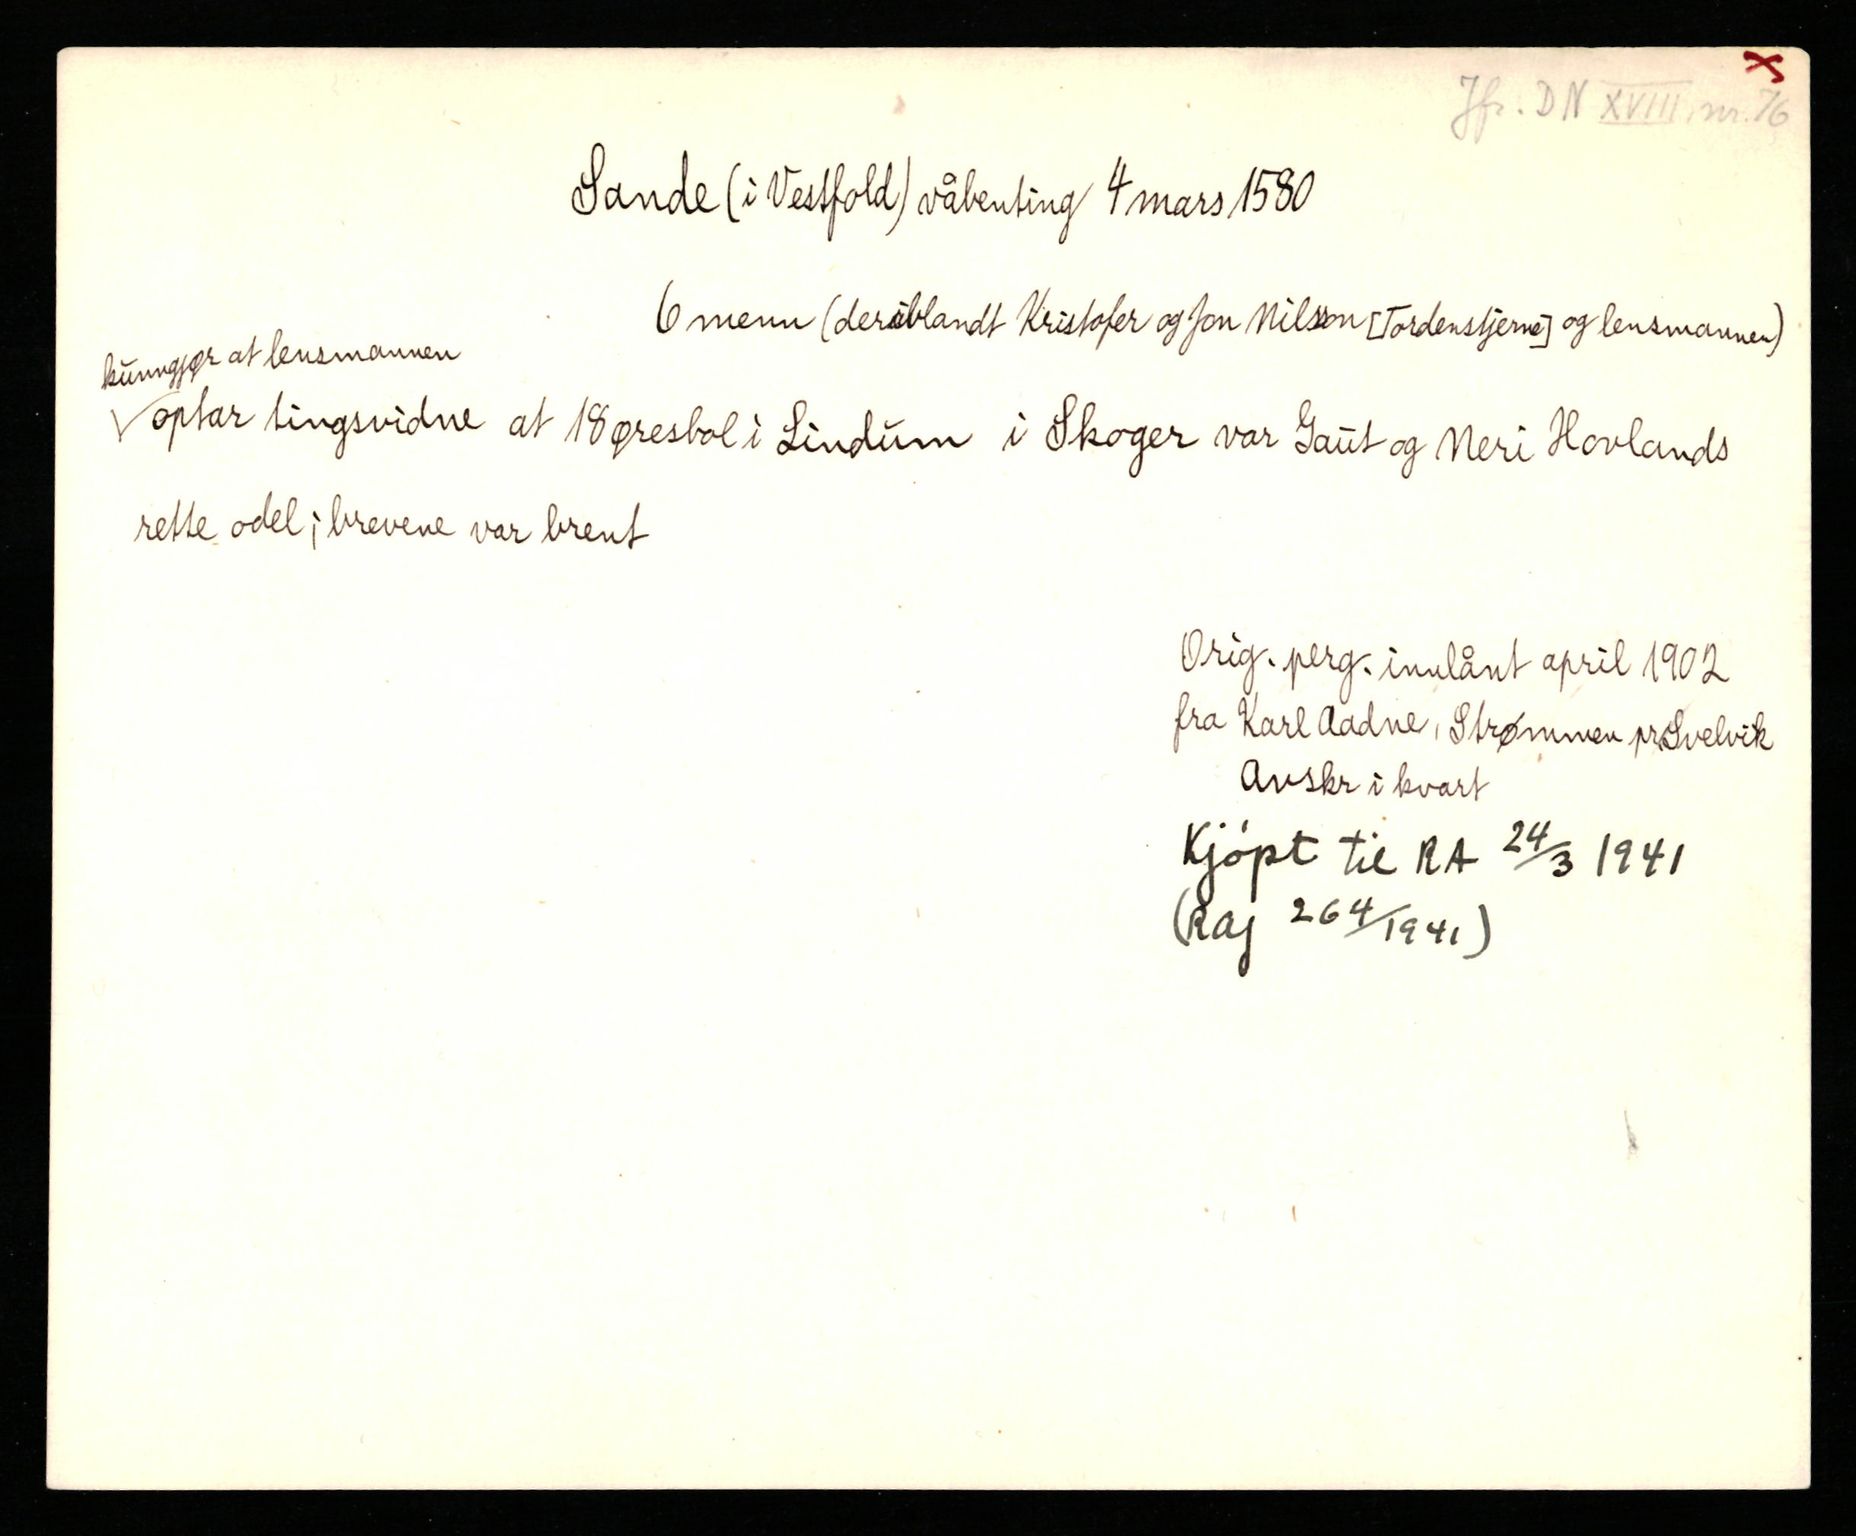 x
Jfr. DN XVIII, nr. 76
Sande (i Vestfold) våbenting 4 mars 1580
6 menn (deriblandt Kristofer og Jon Nilsson [Tordenstjerne] og lensmannen)
kunngjør at lensmannen
√ optar tingsvidne at 18 øresbol i Lindum i Skoger var Gaut og Neri Hovlands
rette odel; brevene var brent
Orig. perg. innlånt april 1902
fra Karl Aadne, Strømmen pr Svelvik
Avskr i kvart
Kjøpt til RA 24/3 1941
(Raj 264/1941)